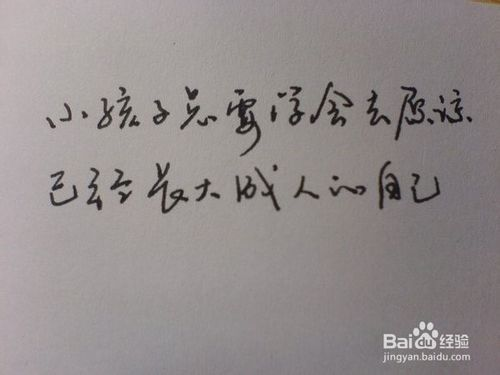 小孩子总要学会去原谅
已经长大成人的自己
Baidu经验
jingyan.baidu.com